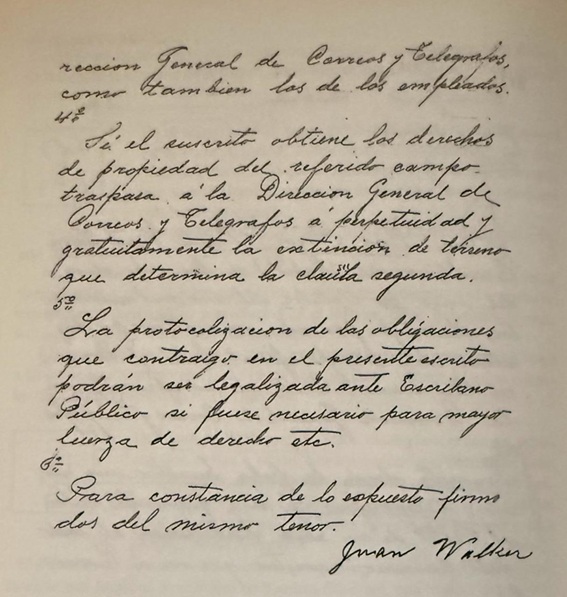 reccion General de Correos y Telegrafos,
como tambien las de los empleados.
4º
Si el suscrito obtiene los derechos
de propiedad del referido campo
traspasa á la Direccion General de
Correos y Telegrafos á perpetuidad y
gratuitamente la extincion de terreno
que determina la clausula segunda.
5º
La protocolizacion de las obligaciones
que contraigo en el presente escrito
podrán ser legalizada ante Escribano
Público si fuese necisario para mayor
fuerza de derecho etc.
6º
Para constancia de lo expuesto firmo
dos del mismo tenor.
Juan Walker